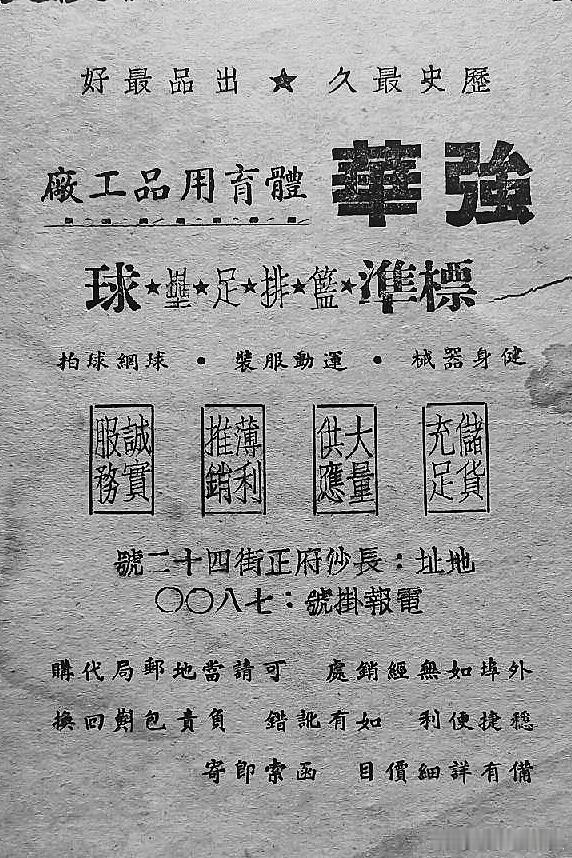 歷史最久 ★ 出品最好
強華 體育用品工廠
標準★籃★排★足★壘★球
健身器械 • 運動服裝 • 球網球拍
儲貨充足 大量供應 薄利推銷 誠實服務
地址：長沙府正街四十二號
電報掛號：七八〇〇
外埠如無經銷處 可請當地郵局代購
穩捷便利 如有訛錯 負責包斢回換
備有詳細價目 函索即寄